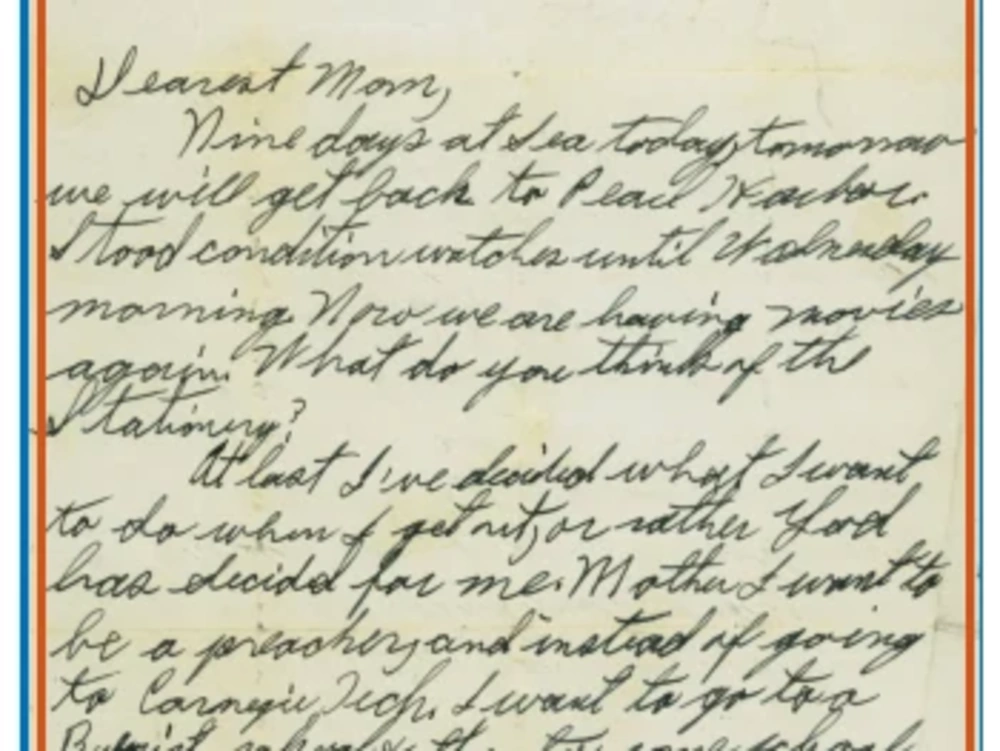 Dearest Mom,
Nine days at Sea today, tomorrow
we will get back to Pearl Harbor.
Stood condition watches until Wednesday
morning. Now we are having movies
again. What do you think of the
Stationery?
At last I've decided what I want
to do when I get out, or rather God
has decided for me. Mother I want to
be a preacher, and instead of going
to Carnegie Tech. I want to go to a
school